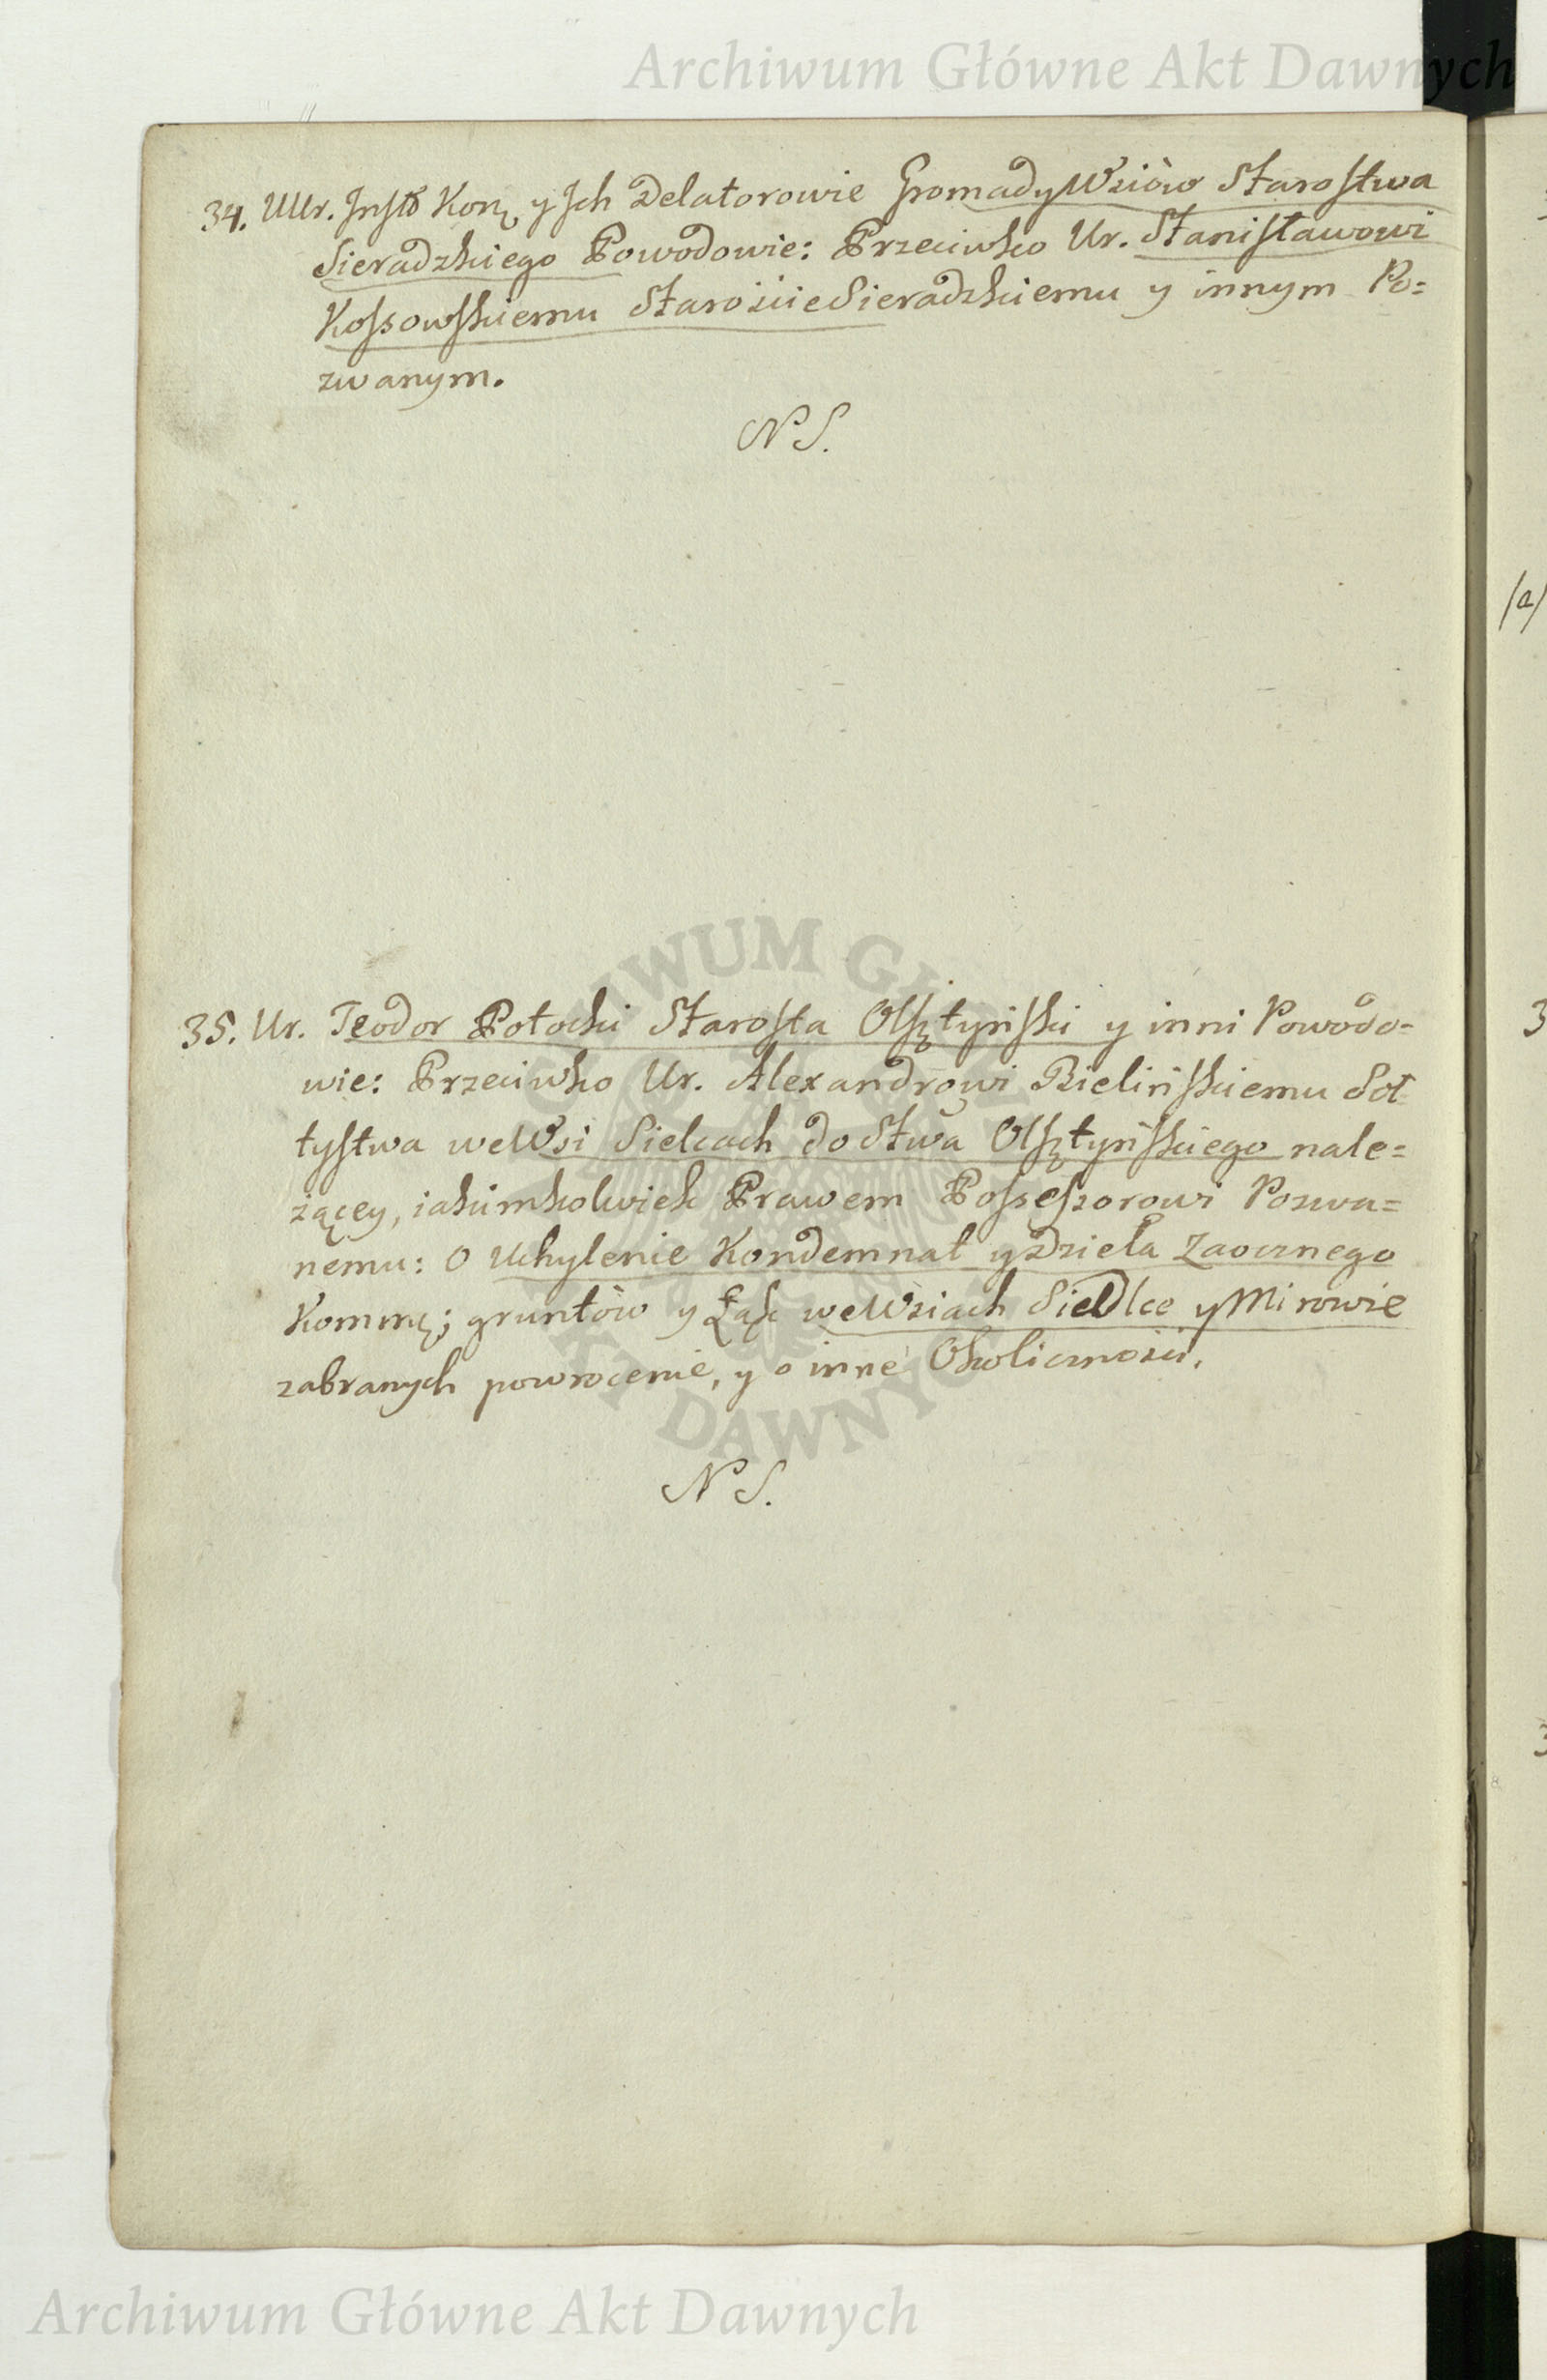 Archiwum Główne Akt Dawnych
34. UUr. Insto Kon, y Ich Delatorowie Gromady Wsiów Starostwa
Sieradzkiego Powodowie: Przeciwko Ur. Stanisławowi
Kossowskiemu Staroście Sieradzkiemu y innym Po=
zwanym.
N S.
/a/
35. Ur. Teodor Potocki Starosta Olsztyński y inni Powodo=
wie: Przeciwko Ur. Alexandrowi Bielińskiemu Soł=
tystwa we Wsi Sielcach do Stwa Olsztyńskiego nale=
żącey, iakimkolwiek Prawem Possessorowi Pozwa=
nemu: O Uchylenie Kondemnat y dzieła Zaocznego
Kommę; gruntów y Łąk we Wsiach Siedlce y Mirowie
zabranych powrocenie, y o inne Okoliczności.
N S.
ARCHIWUM GŁÓWNE AKT DAWNYCH
Archiwum Główne Akt Dawnych